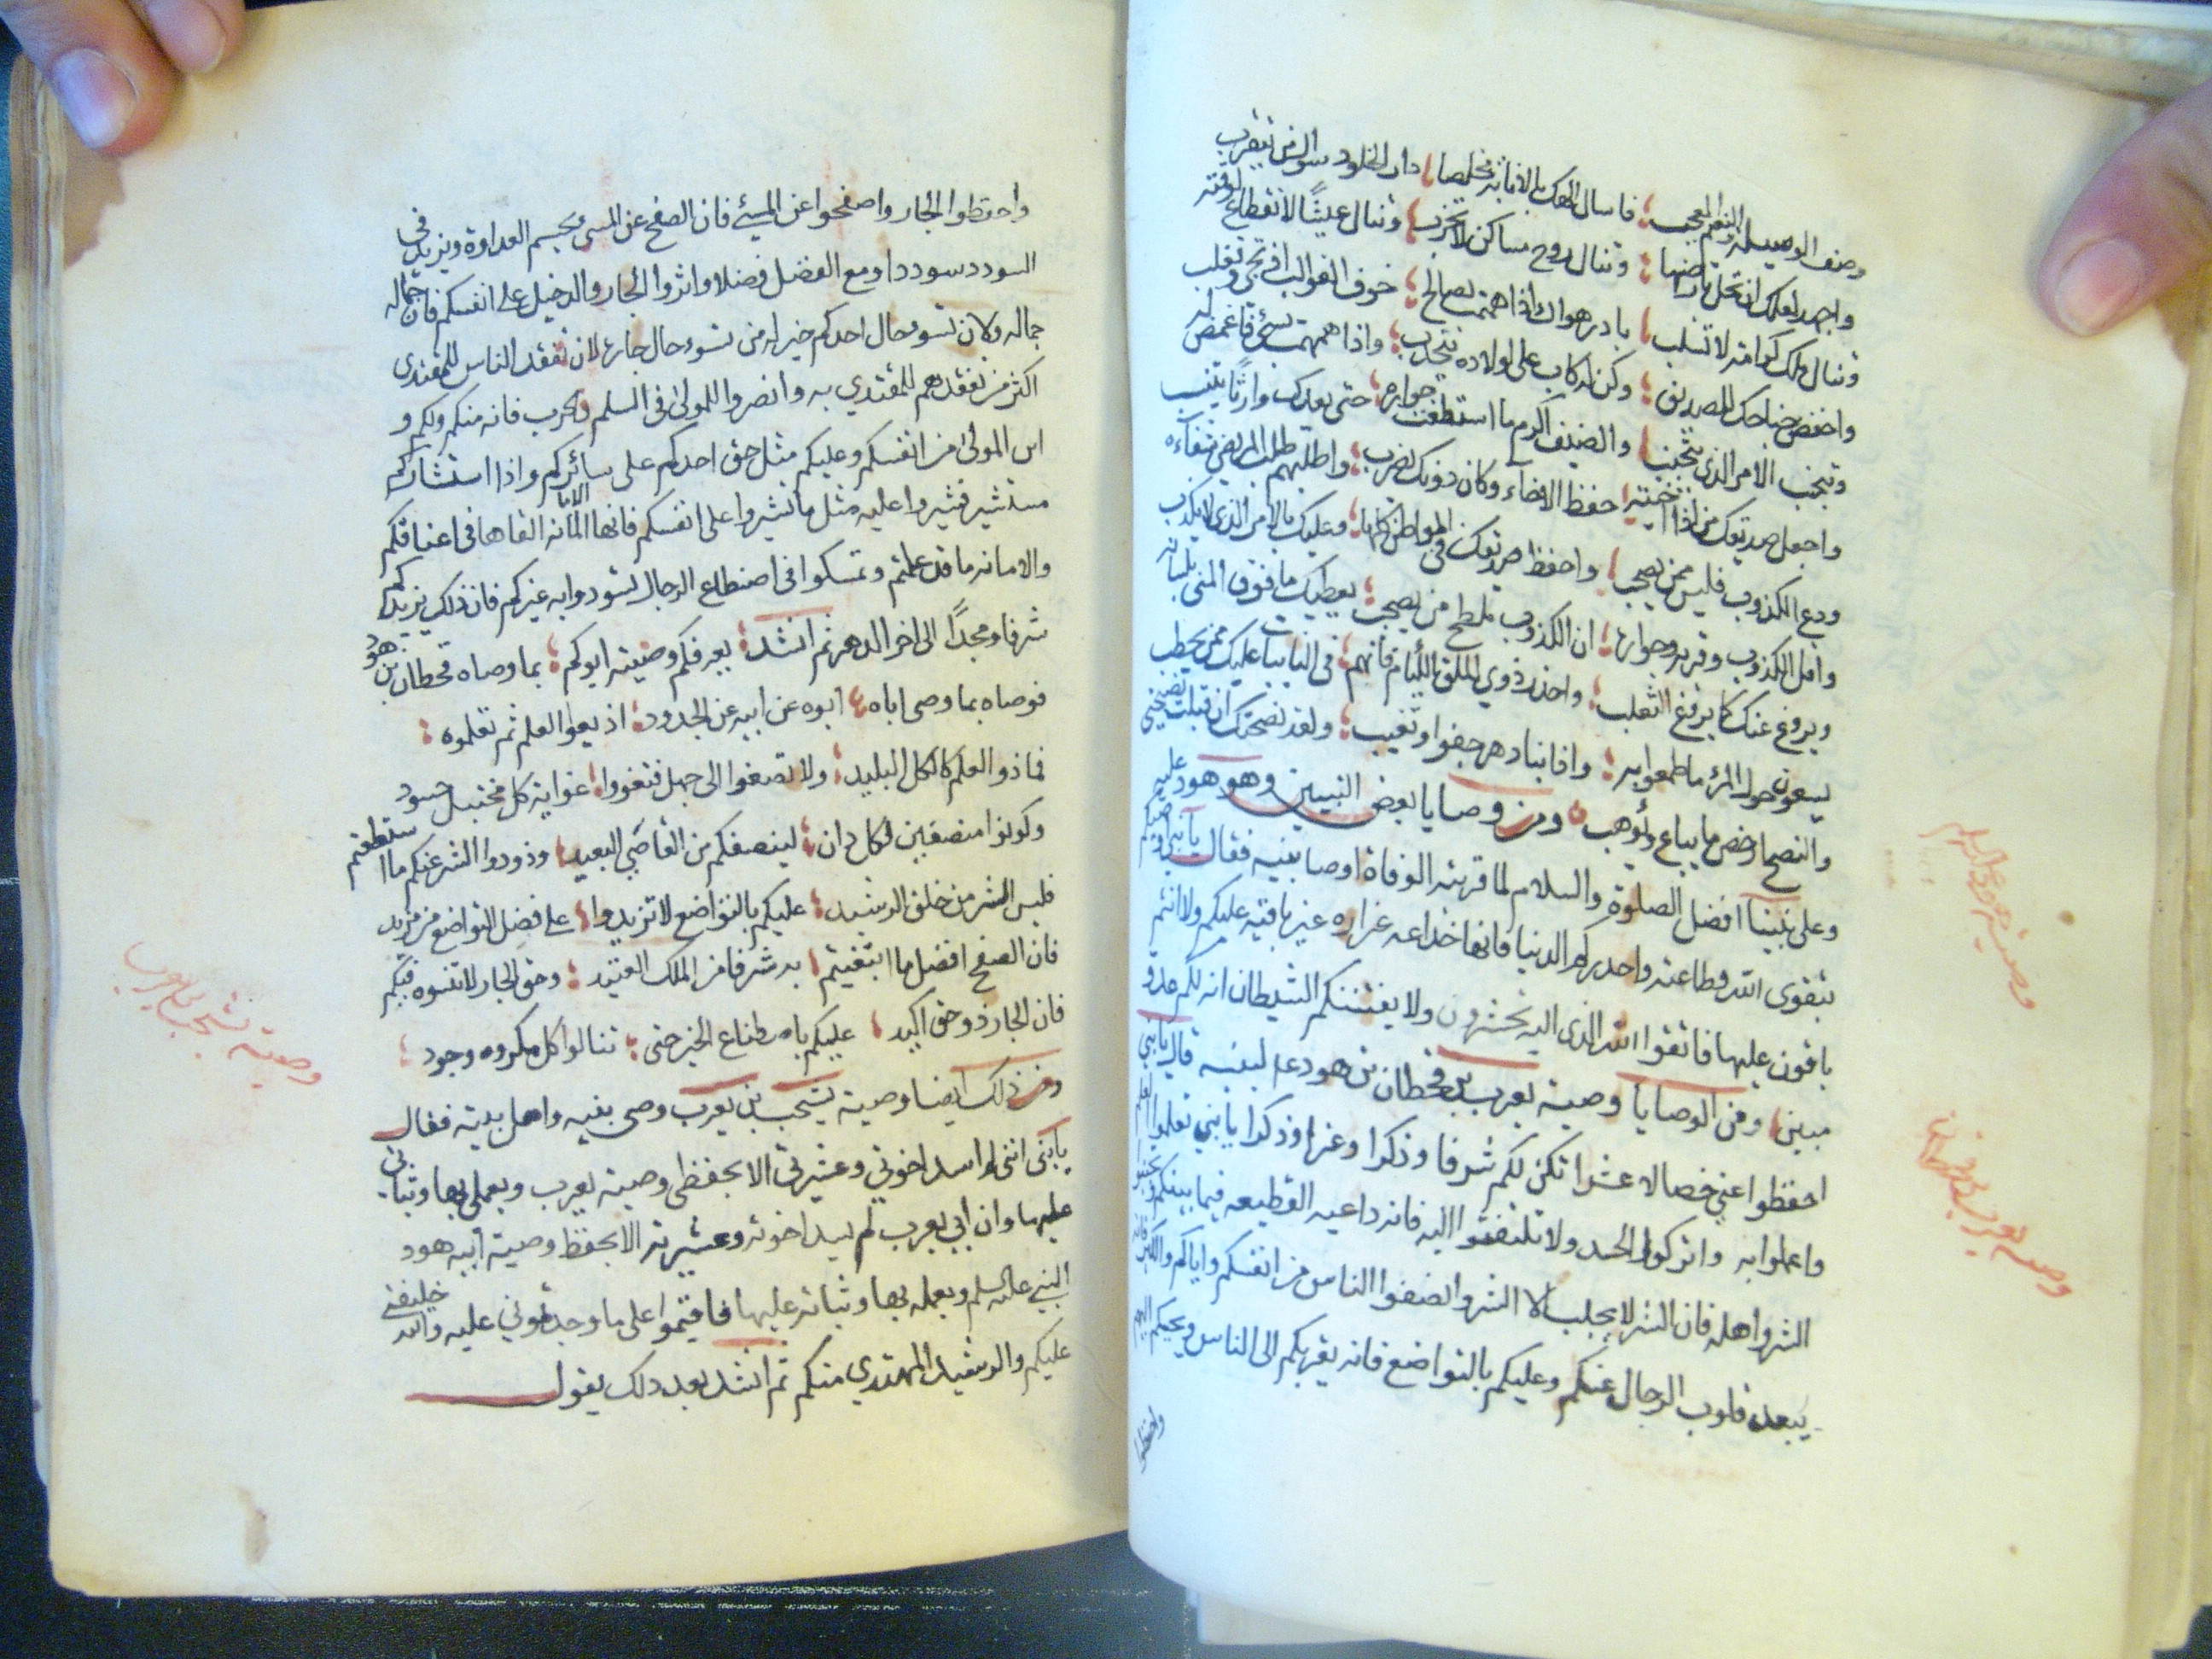 وصف الوسيلة والنعيم المعجب ؛ فاسال الهك بالانابة مخلصا ؛ دار الخلود سوال من يتقرب
واجهد لعلك ان تحل بارضها ؛ وتنال روح مساكن لا تخرب ؛ وتنال عيشا لا انقطاع لوقته
وتنال ملك كرامة لا تسلب ؛ بادر هواك اذا هممت بصالح ؛ خوف الغوالب اذ تجي وتغلب
واذا هممت بسيء فاغمض له
وتجنب الامر الذي يتجنب
واخفض جناحك للصديق ؛ وكن له كاب على اولاده يتحدب ؛
والضيف اكرم ما استطعت جواره ؛ حتى يعدك وارثا يتنسب
واجعل صديقك من اذا اخيته ؛ حفظ الاخاء وكان دونك يضرب ؛ واطلبهم طلب المريض شفاءه
ودع الكذوب فليس ممن يصحب ؛ واحفظ صديقك في المواطن كلها ؛ وعليك بالامر الذي لا يكذب
واقل الكذوب وقربه وجواره ؛ ان الكذوب ملطخ من يصحب ؛ يعطيك ما فوق المنى بلسانه
ويروغ عنك كما يروغ الثعلب ؛ واحذر ذوي الملق اللئام فانهم ؛ في النايبات عليك ممن يحطب
يسعون حول المرء ما طمعوا به ؛ واذا نبا دهر جفوا وتغيب ؛ ولقد نصحتك ان قبلت نصيحتي
والنصح ارخص ما يباع ويوهب ٥ ومن وصايا بعض النبيين وهو هود عليه
وعلى نبينا افضل الصلوة والسلام لما قربته الوفاة اوصا بنيه فقال يا بني اوصيكم
بتقوى الله وطاعته واحذركم الدنيا فانها خداعه غراره غير باقيه عليكم ولا انتم
باقون عليها فاتقوا الله الذي اليه تحشرون ولا يفتننكم الشيطان انه لكم عدو
مبين ؛ ومن الوصايا وصية يعرب بن قحطان بن هود عم لبنيه قال يا بني
احفظوا عني خصالا عشرا تكن لكم شرفا وذكرا وعزا وذكرا يا بني تعلموا العلم
واعملوا به واتركوا الحسد ولا تلتفتوا اليه فانه داعيه القطيعه فيما بينكم وتجنبوا
الشر واهله فان الشر لا يجلب الا الشر وانصفوا الناس من انفسكم واياكم والكبر فانه
يبعد قلوب الرجال عنكم وعليكم بالتواضع فانه يقربكم الى الناس ويحببكم اليهم
واحفظوا
وصية هود عليه السلم
وصية يعرب بن قحطان
واحفظوا الجار واصفحوا عن المسيء فان الصفح عن المسي يحسم العداوة ويزيد في
السودد سوددا ومع الفضل فضلا واثروا الجار والدخيل على انفسكم فان جماله
جماله ولان تسوء حال احدكم خير له من تسوء حال جاره لان تفقد الناس للمقتدى
اكثر من تفقدهم للمقتدي به وانصروا المولى في السلم والحرب فانه منكم ولكم و
ابن المولى من انفسكم وعليكم مثل حق احدكم على سائركم واذا استشاركم
مستشير فشيروا عليه مثل ما تشيروا على انفسكم فانها الامانه القاها في اعناقكم
والامانه ما قد علمتم وتمسكوا في اصطناع الرجال تسودوا به غيركم فان ذلك يزيدكم
شرفا ومجدا الى اخر الدهر ثم انشد ؛ يعرفكم وصيته ابوكم ؛ بما وصاه قحطان بن هود
فوصاه بما وصى اباه ؛ ابوه عن ابيه عن الجدود ؛ اذيعوا العلم ثم تعلموه ؛
فما ذو العلم كالكل البليد ؛ ولا تصغوا الى جهل فتغووا ؛ غواية كل مختبل حسود
وكونوا منصفين لكل دان ؛ لينصفكم من القاصي البعيد ؛ وذودوا الشر عنكم ما استطعتم
فليس الشر من خلق الرشيد ؛ عليكم بالتواضع لا تزيدوا ؛ على فضل التواضع من مزيد
فان الصفح افضل ما ابتغيتم ؛ به شرفا من الملك العتيد ؛ وحق الجار لا تنسوه فيكم
فان الجار ذو حق اكيد ؛ عليكم باصطناع الخير حتى ؛ تنالوا كل مكرمه وجود ؛
ومن ذلك ايضا وصية يشجب بن يعرب وصى بنيه واهل بيته فقال
يا بني انني لم اسد اخوتي وعشيرتي الا بحفظي وصية يعرب وبعملي بها وثباتي
عليها وان ابي يعرب لم يسد اخوته وعشيرته الا بحفظ وصية ابيه هود
النبي عليه السلم وبعمله بها وثباته عليها فاقيموا على ما وجدتموني عليه والله خليفتي
عليكم والرشيد المهتدي منكم ثم انشد بعد ذلك يقول
وصية يشجب بن يعرب